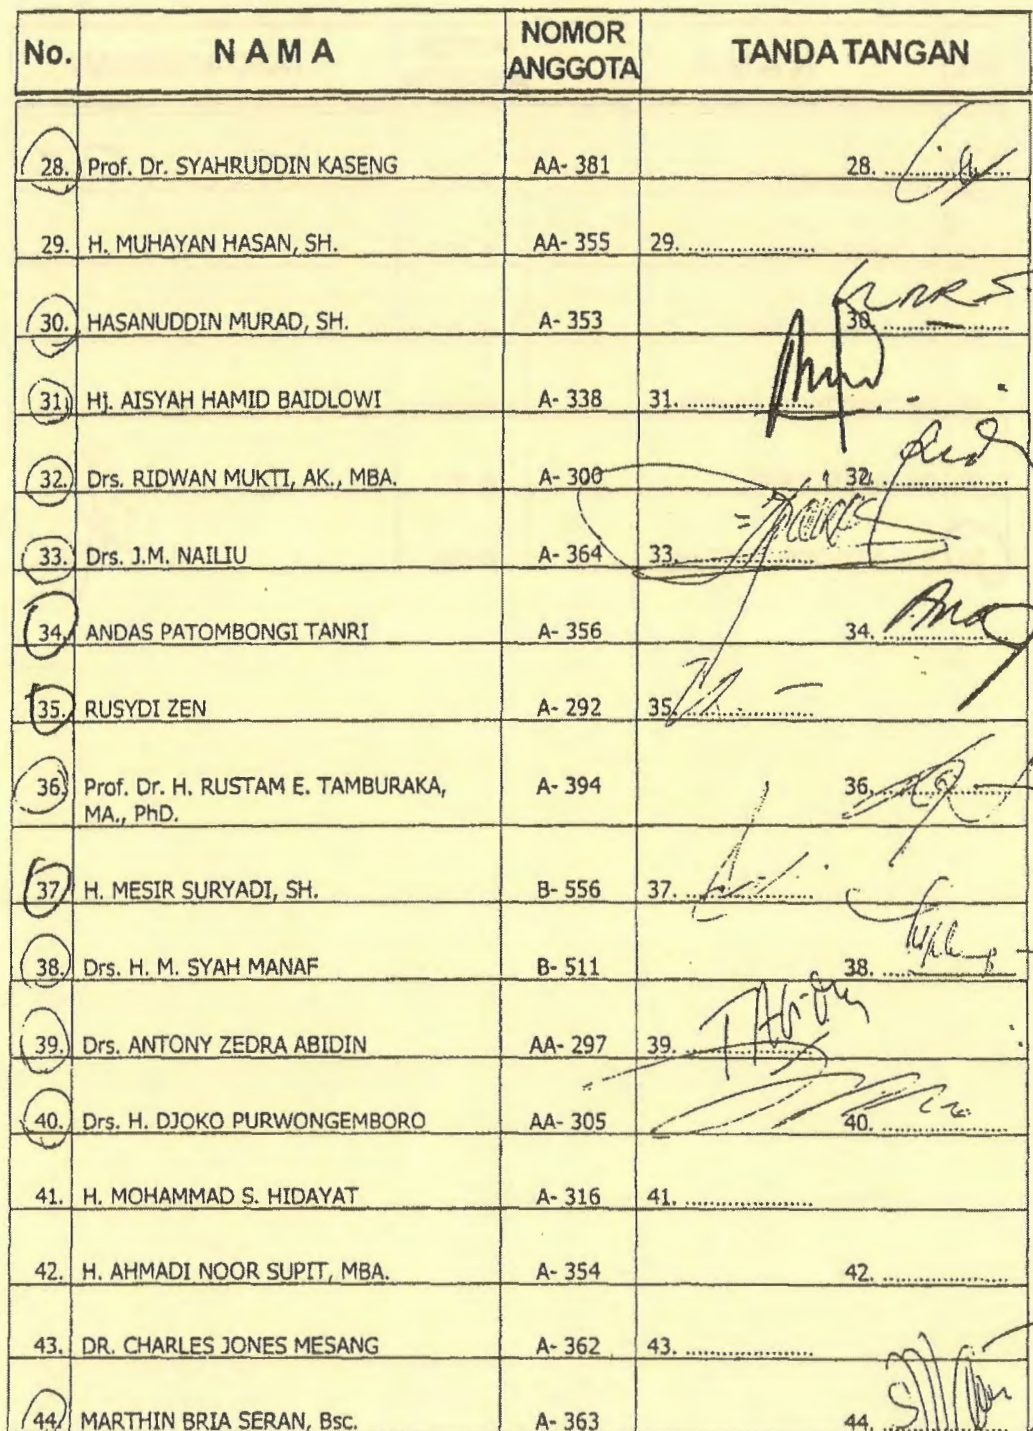 No. N A M A NOMOR ANGGOTA TANDA TANGAN
28. Prof. Dr. SYAHRUDDIN KASENG AA- 381 28. ..............
29. H. MUHAYAN HASAN, SH. AA- 355 29. ....................
30. HASANUDDIN MURAD, SH. A- 353 30. ....................
31. Hj. AISYAH HAMID BAIDLOWI A- 338 31. ....................
32. Drs. RIDWAN MUKTI, AK., MBA. A- 300 32. ....................
33. Drs. J.M. NAILIU A- 364 33. ....................
34. ANDAS PATOMBONGI TANRI A- 356 34. ....................
35. RUSYDI ZEN A- 292 35. ....................
36. Prof. Dr. H. RUSTAM E. TAMBURAKA, A- 394 36. ....................
MA., PhD.
37. H. MESIR SURYADI, SH. B- 556 37. ....................
38. Drs. H. M. SYAH MANAF B- 511 38. ....................
39. Drs. ANTONY ZEDRA ABIDIN AA- 297 39. ....................
40. Drs. H. DJOKO PURWONGEMBORO AA- 305 40. ....................
41. H. MOHAMMAD S. HIDAYAT A- 316 41. ....................
42. H. AHMADI NOOR SUPIT, MBA. A- 354 42. ....................
43. DR. CHARLES JONES MESANG A- 362 43. ....................
44. MARTHIN BRIA SERAN, Bsc. A- 363 44. ....................